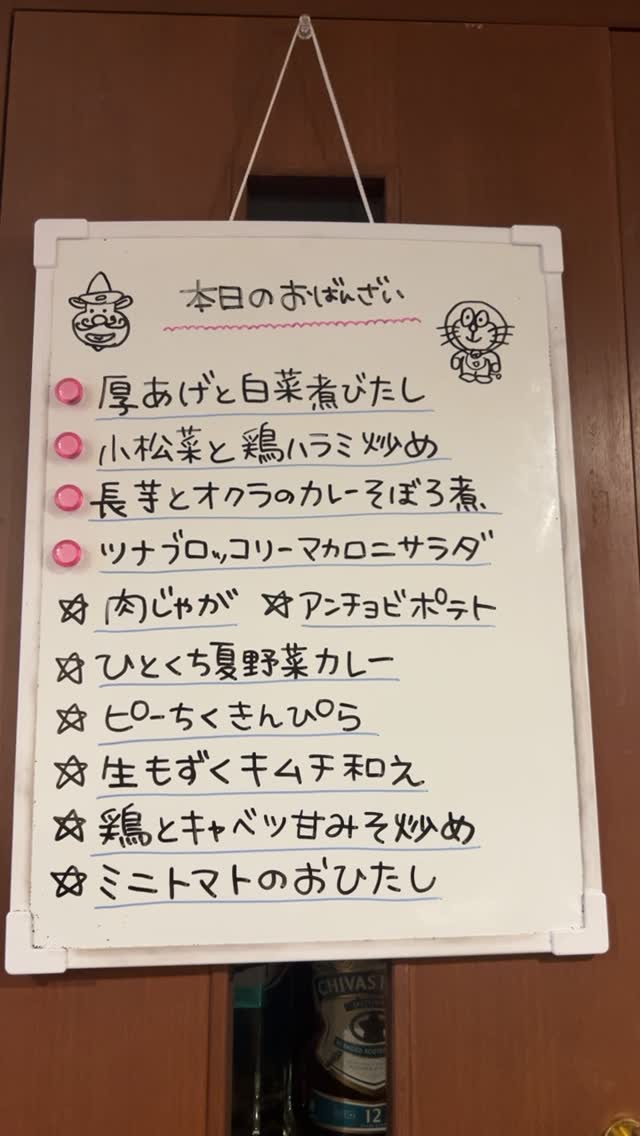 本日のおばんざい
厚あげと白菜煮びたし
小松菜と鶏ハラミ炒め
長芋とオクラのカレーそぼろ煮
ツナブロッコリーマカロニサラダ
☆ 肉じゃが ☆ アンチョビポテト
☆ ひとくち夏野菜カレー
☆ ピーちくきんぴら
☆ 生もずくキムチ和え
☆ 鶏とキャベツ甘みそ炒め
☆ ミニトマトのおひたし
CHIVAS
12